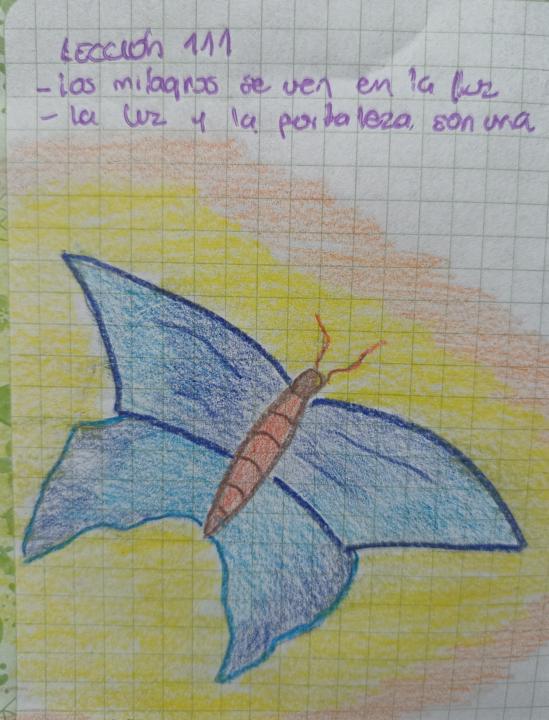 Lección 111
- Los milagros se ven en la luz
- La luz y la fortaleza son una